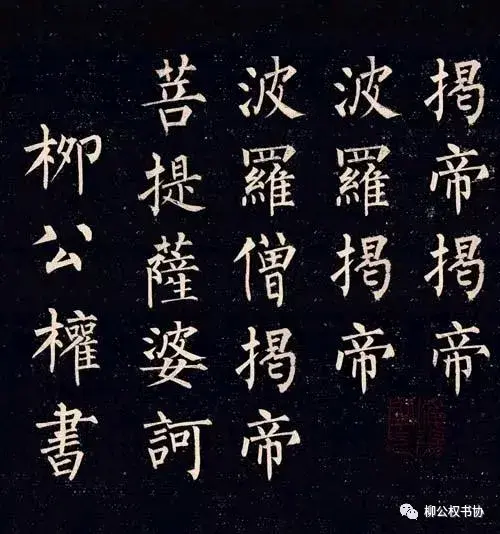 揭帝揭帝
波羅揭帝
波羅僧揭帝
菩提薩婆訶
柳公權書
柳公权书协